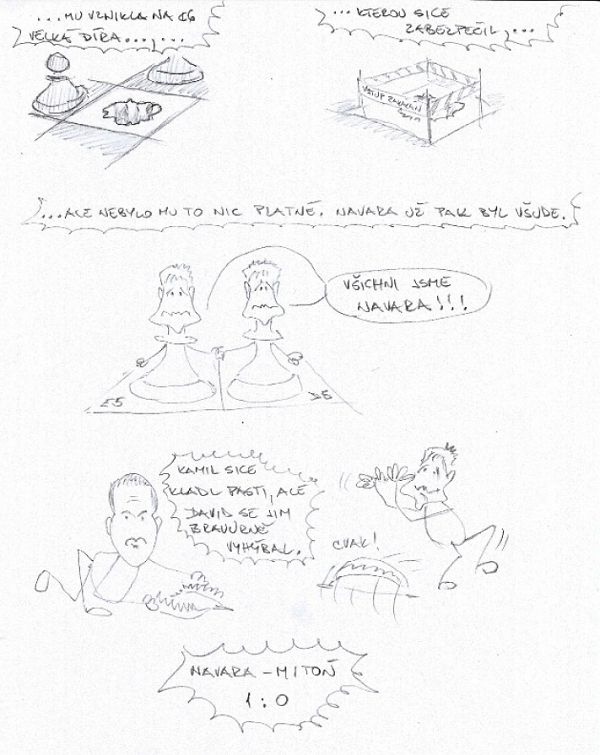 ...MU VZNIKLA NA C6
VELKÁ DÍRA...,...
...KTEROU SICE
ZABEZPEČIL,...
VSTUP ZAKÁZÁN
...ALE NEBYLO MU TO NIC PLATNÉ. NAVARA UŽ PAK BYL VŠUDE.
VŠICHNI JSME
NAVARA!!!
E5
KAMIL SICE
KLADL PASTI, ALE
DAVID SE JIM
BRAVURNĚ
VYHÝBAL.
CVAK!
NAVARA – MITOŇ
1:0